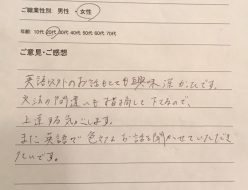 ご職業性別 男性 ・ 女性
年齢 10代 20代 30代 40代 50代 60代 70代
ご意見・ご感想
英語以外のお話もとても興味深かったです。
文法の間違いも指摘して下さるので、
上達する気がします。
また英語で色々なお話を聞かせていただき
たいです。